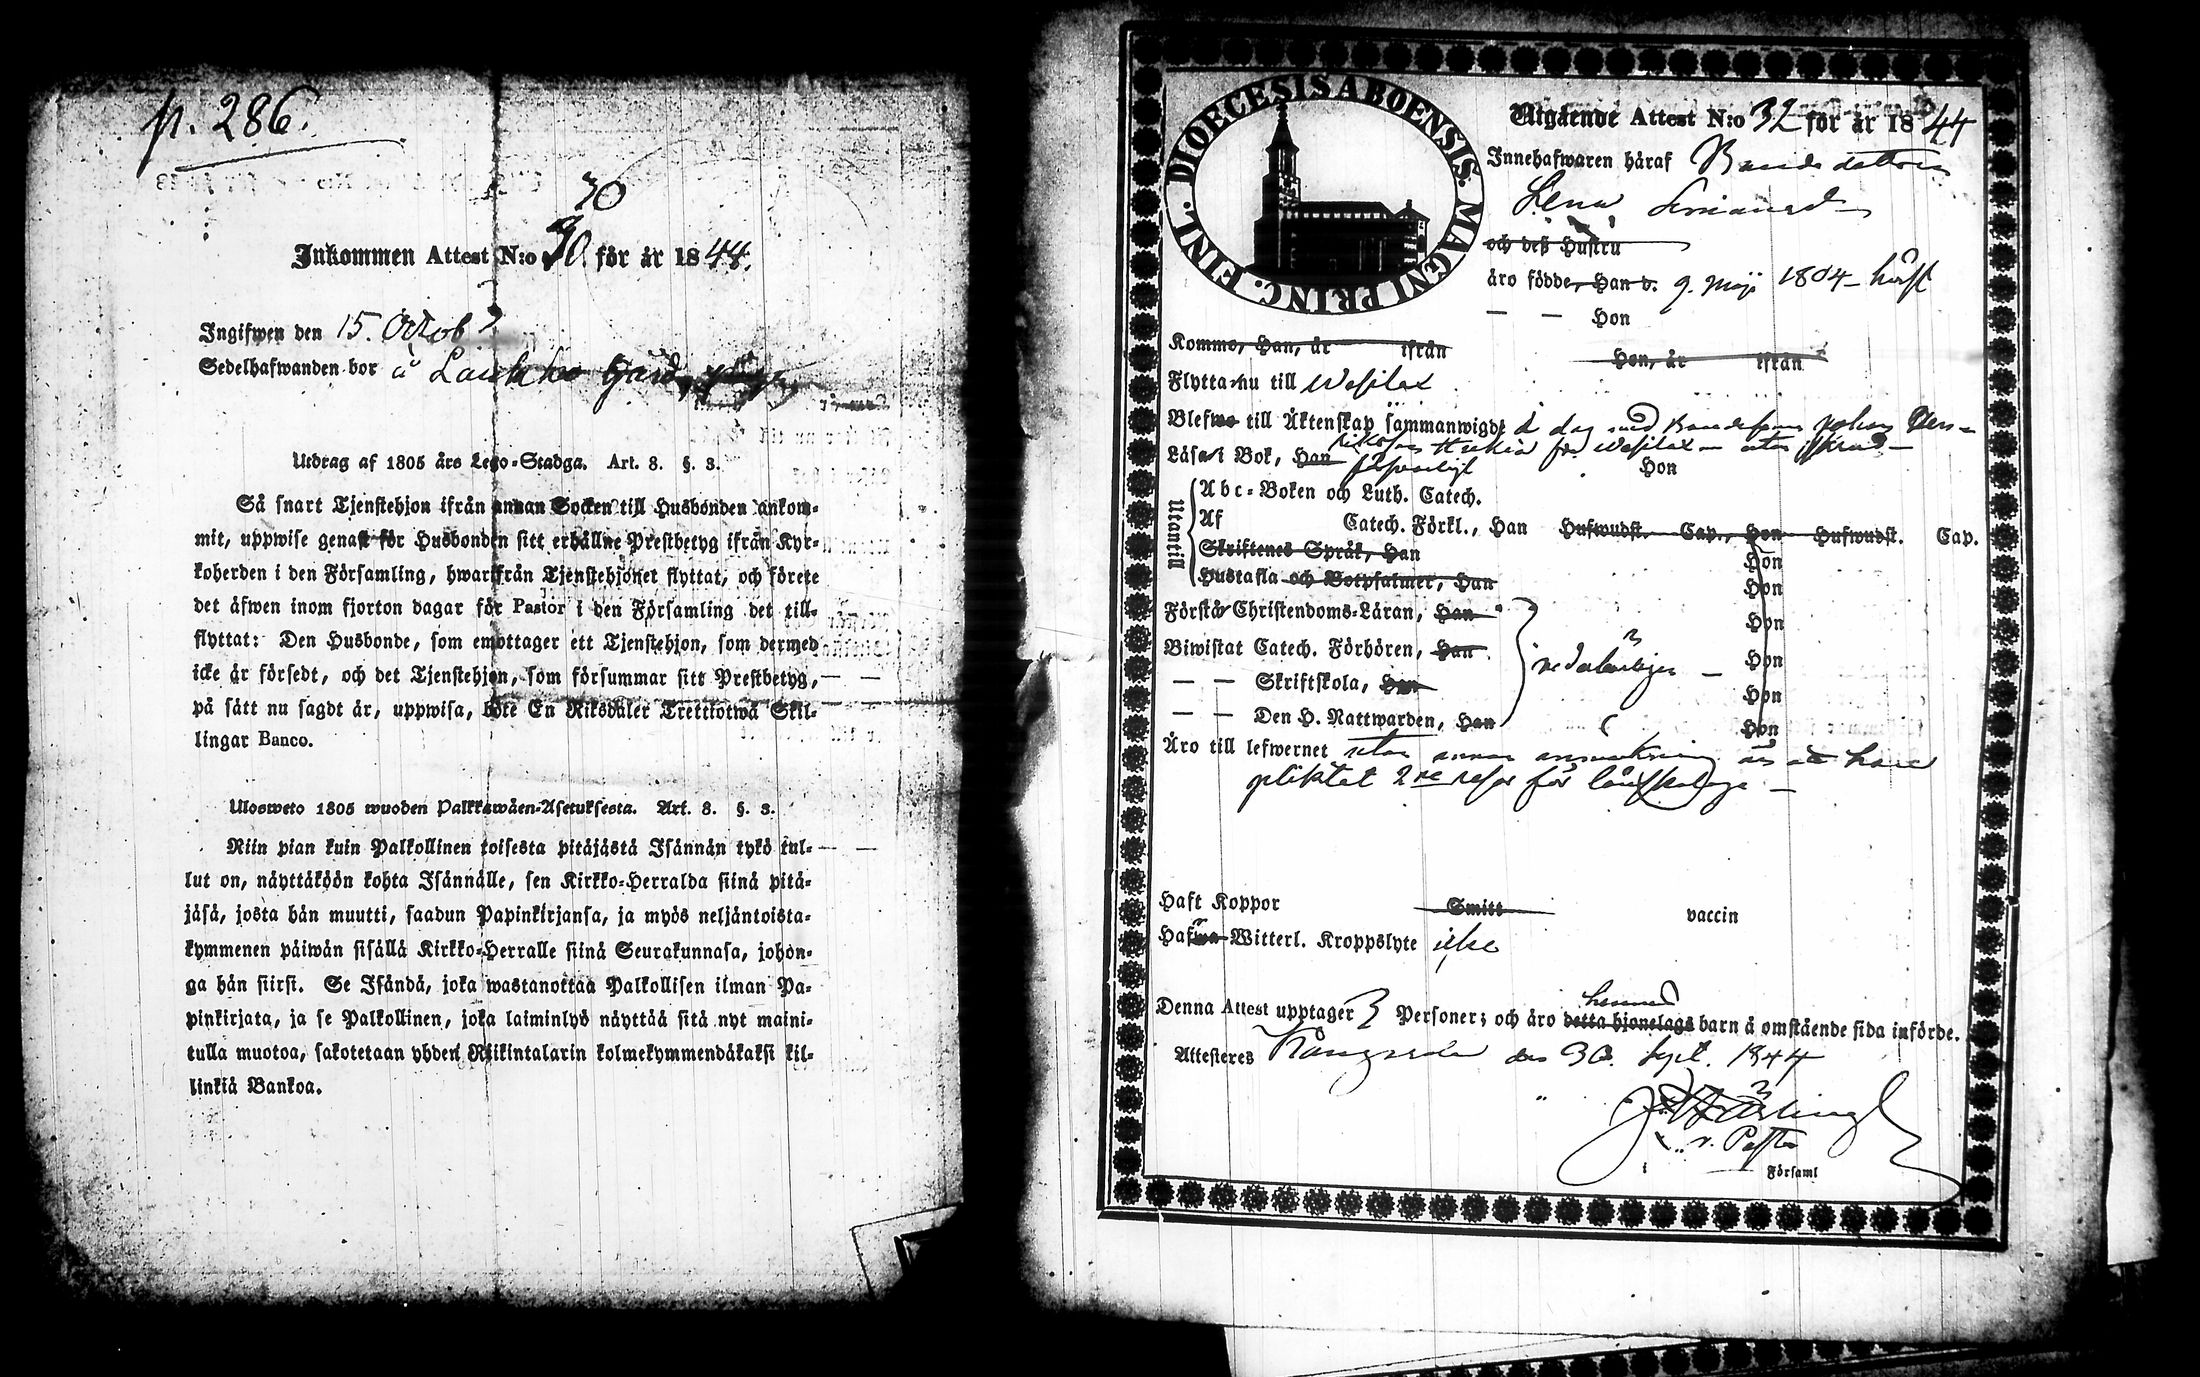 p. 286.
30
Inkommen Attest N:o 30. för år 1844.
Ingifwen den 15. Octob
Sedelhafwanden bor å Laukko Gård
Utdrag af 1805 års Lego-Stadga. Art. 8. §. 3.
Så snart Tjenstehjon ifrån annan Socken till Husbonden ankom-
mit, uppwise genast för Husbonden sitt erhållne Prestbetyg ifrån Kyr-
koherden i den Församling, hwarifrån Tjenstehjonet flyttat, och förete
det äfwen inom fjorton dagar för Pastor i den Församling det till-
flyttat: Den Husbonde, som emottager ett Tjenstehjon, som dermed
icke är försedt, och det Tjenstehjon, som försummar sitt Prestbetyg,
på sätt nu sagdt är, uppwisa, böte En Riksdaler Trettiotwå Skil-
lingar Banco.
Ulosweto 1805 wuoden Palkkawäen-Asetuksesta. Art. 8. §. 3.
Niin pian kuin Palkollinen toisesta pitäjästä Isännän tykö tul-
lut on, näyttäköön kohta Isännälle, sen Kirkko-Herralda siinä pitä-
jäsä, josta hän muutti, saadun Papinkirjansa, ja myös neljäntoista-
kymmenen päiwän sisällä Kirkko-Herralle siinä Seurakunnasa, johon-
ga hän siirsi. Se Isändä, joka wastanottaa Palkollisen ilman Pa-
pinkirjata, ja se Palkollinen, joka laiminlyö näyttää sitä nyt maini-
tulla muotoa, sakotetaan yhden Riikintalarin kolmekymmendäkaksi kil-
linkiä Bankoa.
DIOECESIS ABOENSIS. MAGNI PRINC. FINL.
Utgående Attest N:o 32 för år 1844
Innehafwaren häraf Bonde dottren
Lena
och deß Hustru
äro födde, Han d. 9. Maji 1804
— — Hon
Kommo, Han, år ifrån Hon, år ifrån
Flytta nu till Wesilax
Blefwo till Äktenskap sammanwigde i dag med Bondesonen Johan Hen-
riksson för Wesilax
Läsa i Bok, Han försvarligt Hon
Utantill
Abc-Boken och Luth. Catech.
Af Catech. Förkl., Han Hufwudst. Cap., Hon Hufwudst. Cap.
Skriftenes Språk, Han Hon
Hustafla och Botpsalmer, Han Hon
Förstå Christendoms-Läran, Han Hon
Biwistat Catech. Förhören, Han Hon
— — Skriftskola, Han Hon
— — Den H. Nattwarden, Han Hon
Äro till lefwernet utan annan anmärkning än att hava
pliktat 2ne resor för lönskaläge —
Haft Koppor Smitt vaccin
Hafwa Witterl. Kroppslyte icke
hennes
Denna Attest upptager 3 Personer; och äro detta hjonelags barn å omstående sida införde.
Attesteres Kångsala den 30. Sept. 1844
v. Pastor
i Församl